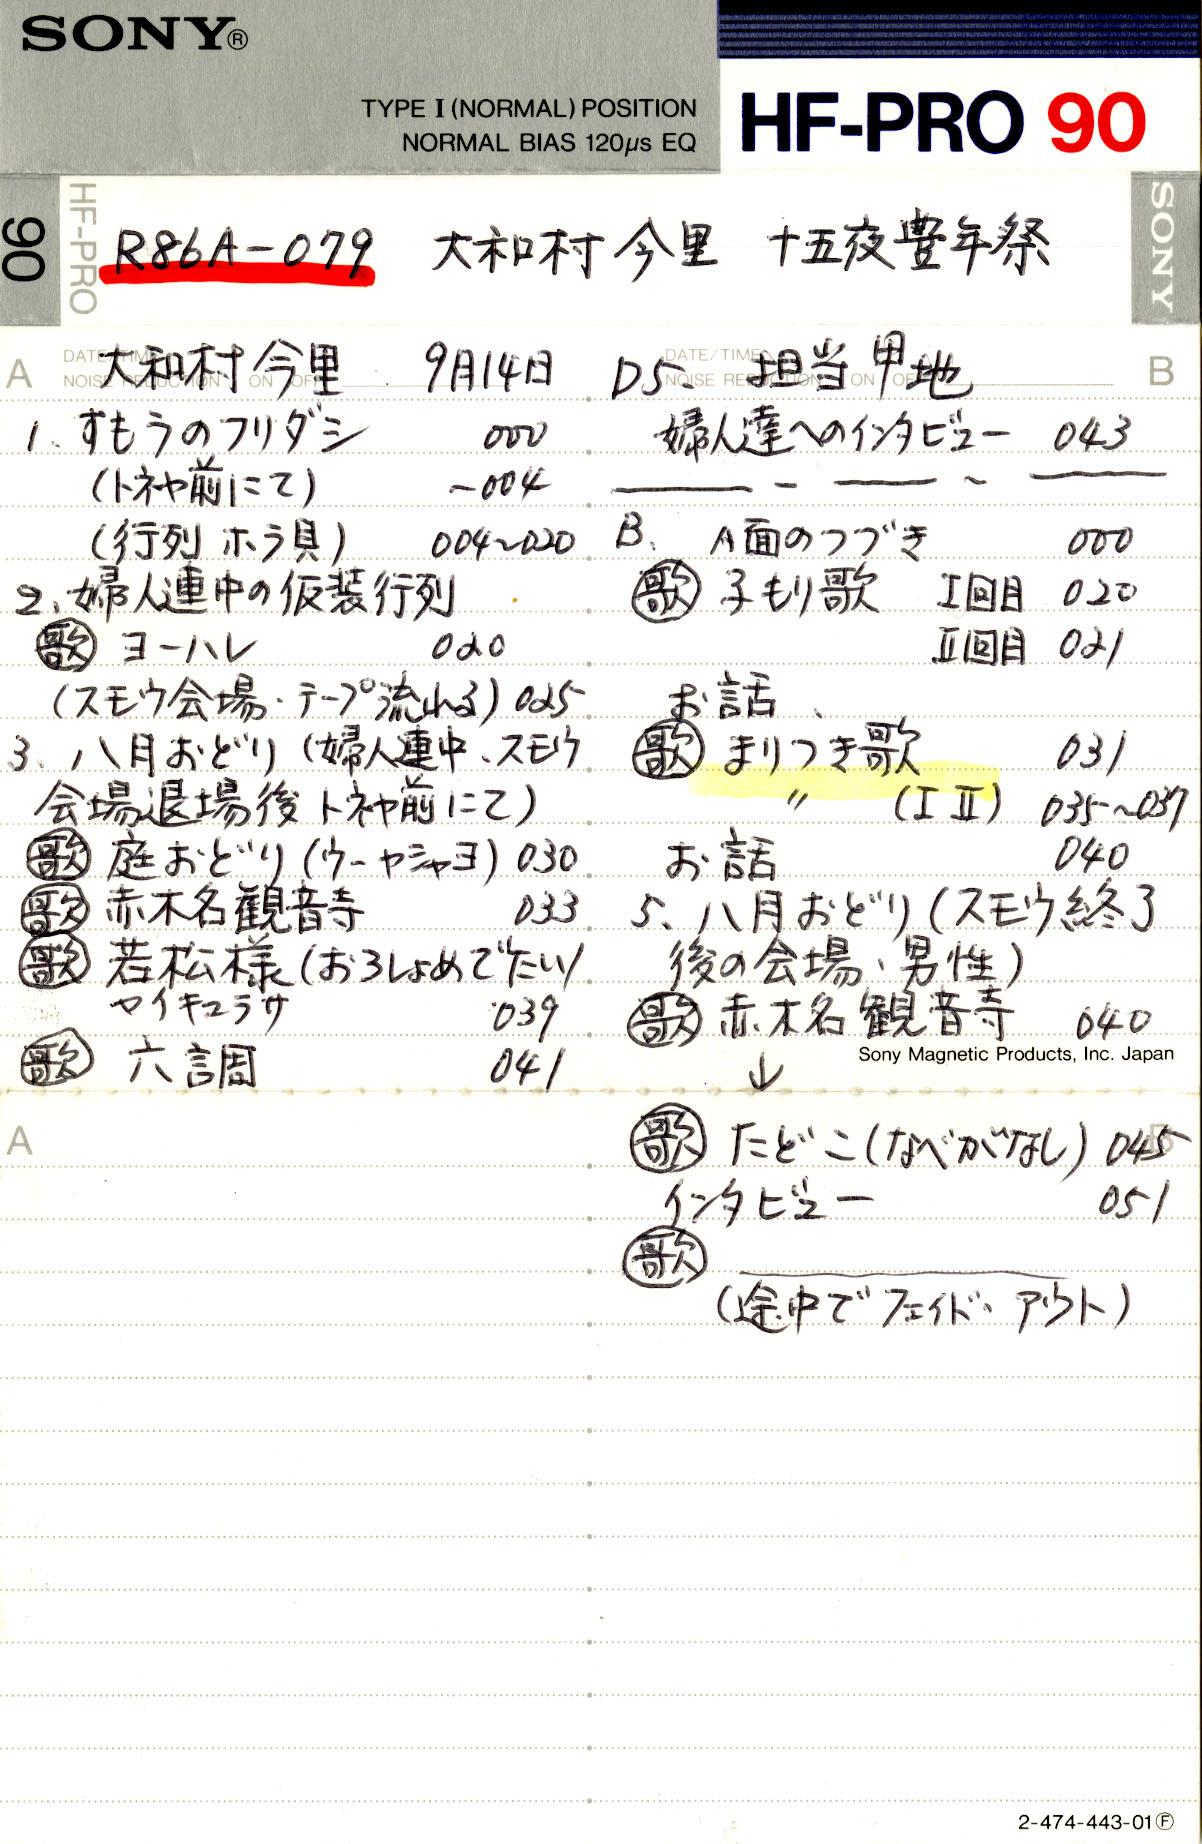 SONY®
TYPE I (NORMAL) POSITION
NORMAL BIAS 120μs EQ
HF-PRO 90
90
HF-PRO
R86A-079 大和村 今里 十五夜豊年祭
SONY
A DATE/TIME
NOISE REDUCTION ON OFF
大和村 今里 9月14日
1. すもうのフリダシ 000
(トネヤ前にて) ~004
(行列 ホラ貝) 004~020
2、婦人連中の仮装行列
歌 ヨーハレ 020
(スモウ会場・テープ流れる) 025
3、八月おどり (婦人連中、スモウ
会場退場後 トネヤ前にて)
歌 庭おどり (ウーヤシャヨ) 030
歌 赤木名観音寺 033
歌 若松様 (おろしょめでたい/
ヤイキュラサ 039
歌 六調 041
DATE/TIME B
NOISE REDUCTION ON OFF
D5. 担当 甲地
婦人達へのインタビュー 043
B. A面のつづき 000
歌 子もり歌 I回目 020
II回目 021
お話、
歌 まりつき歌 031
〃 (I II) 035~037
お話 040
5、八月おどり (スモウ終了
後の会場、男性)
歌 赤木名観音寺 040
↓
Sony Magnetic Products, Inc. Japan
A
B
歌 たどこ (なべがなし) 045
インタビュー 051
歌
(途中でフェイド・アウト)
2-474-443-01Ⓕ